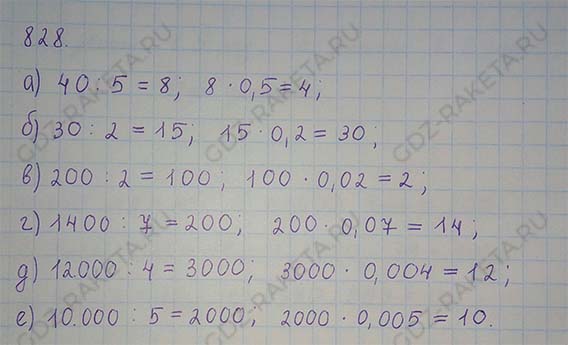 828.
а) 40 : 5 = 8; 8 · 0,5 = 4;
б) 30 : 2 = 15; 15 · 0,2 = 30;
в) 200 : 2 = 100; 100 · 0,02 = 2;
г) 1400 : 7 = 200; 200 · 0,07 = 14;
д) 12000 : 4 = 3000; 3000 · 0,004 = 12;
е) 10.000 : 5 = 2000; 2000 · 0,005 = 10.
GDZ-RAKETA.RU
GDZ-RAKETA.RU
GDZ-RAKETA.RU
GDZ-RAKETA.RU
GDZ-RAKETA.RU
GDZ-RAKETA.RU